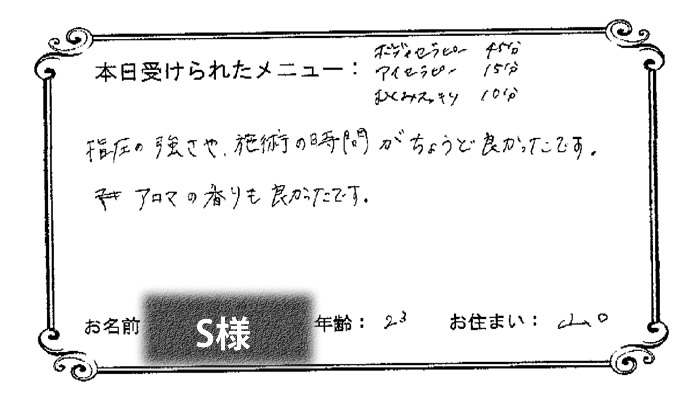 ボディセラピー 45分
本日受けられたメニュー：アイセラピー 15分
むくみスッキリ 10分
指圧の強さや、施術の時間がちょうど良かったです。
アロマの香りも良かったです。
お名前 S様 年齢：23 お住まい：山口